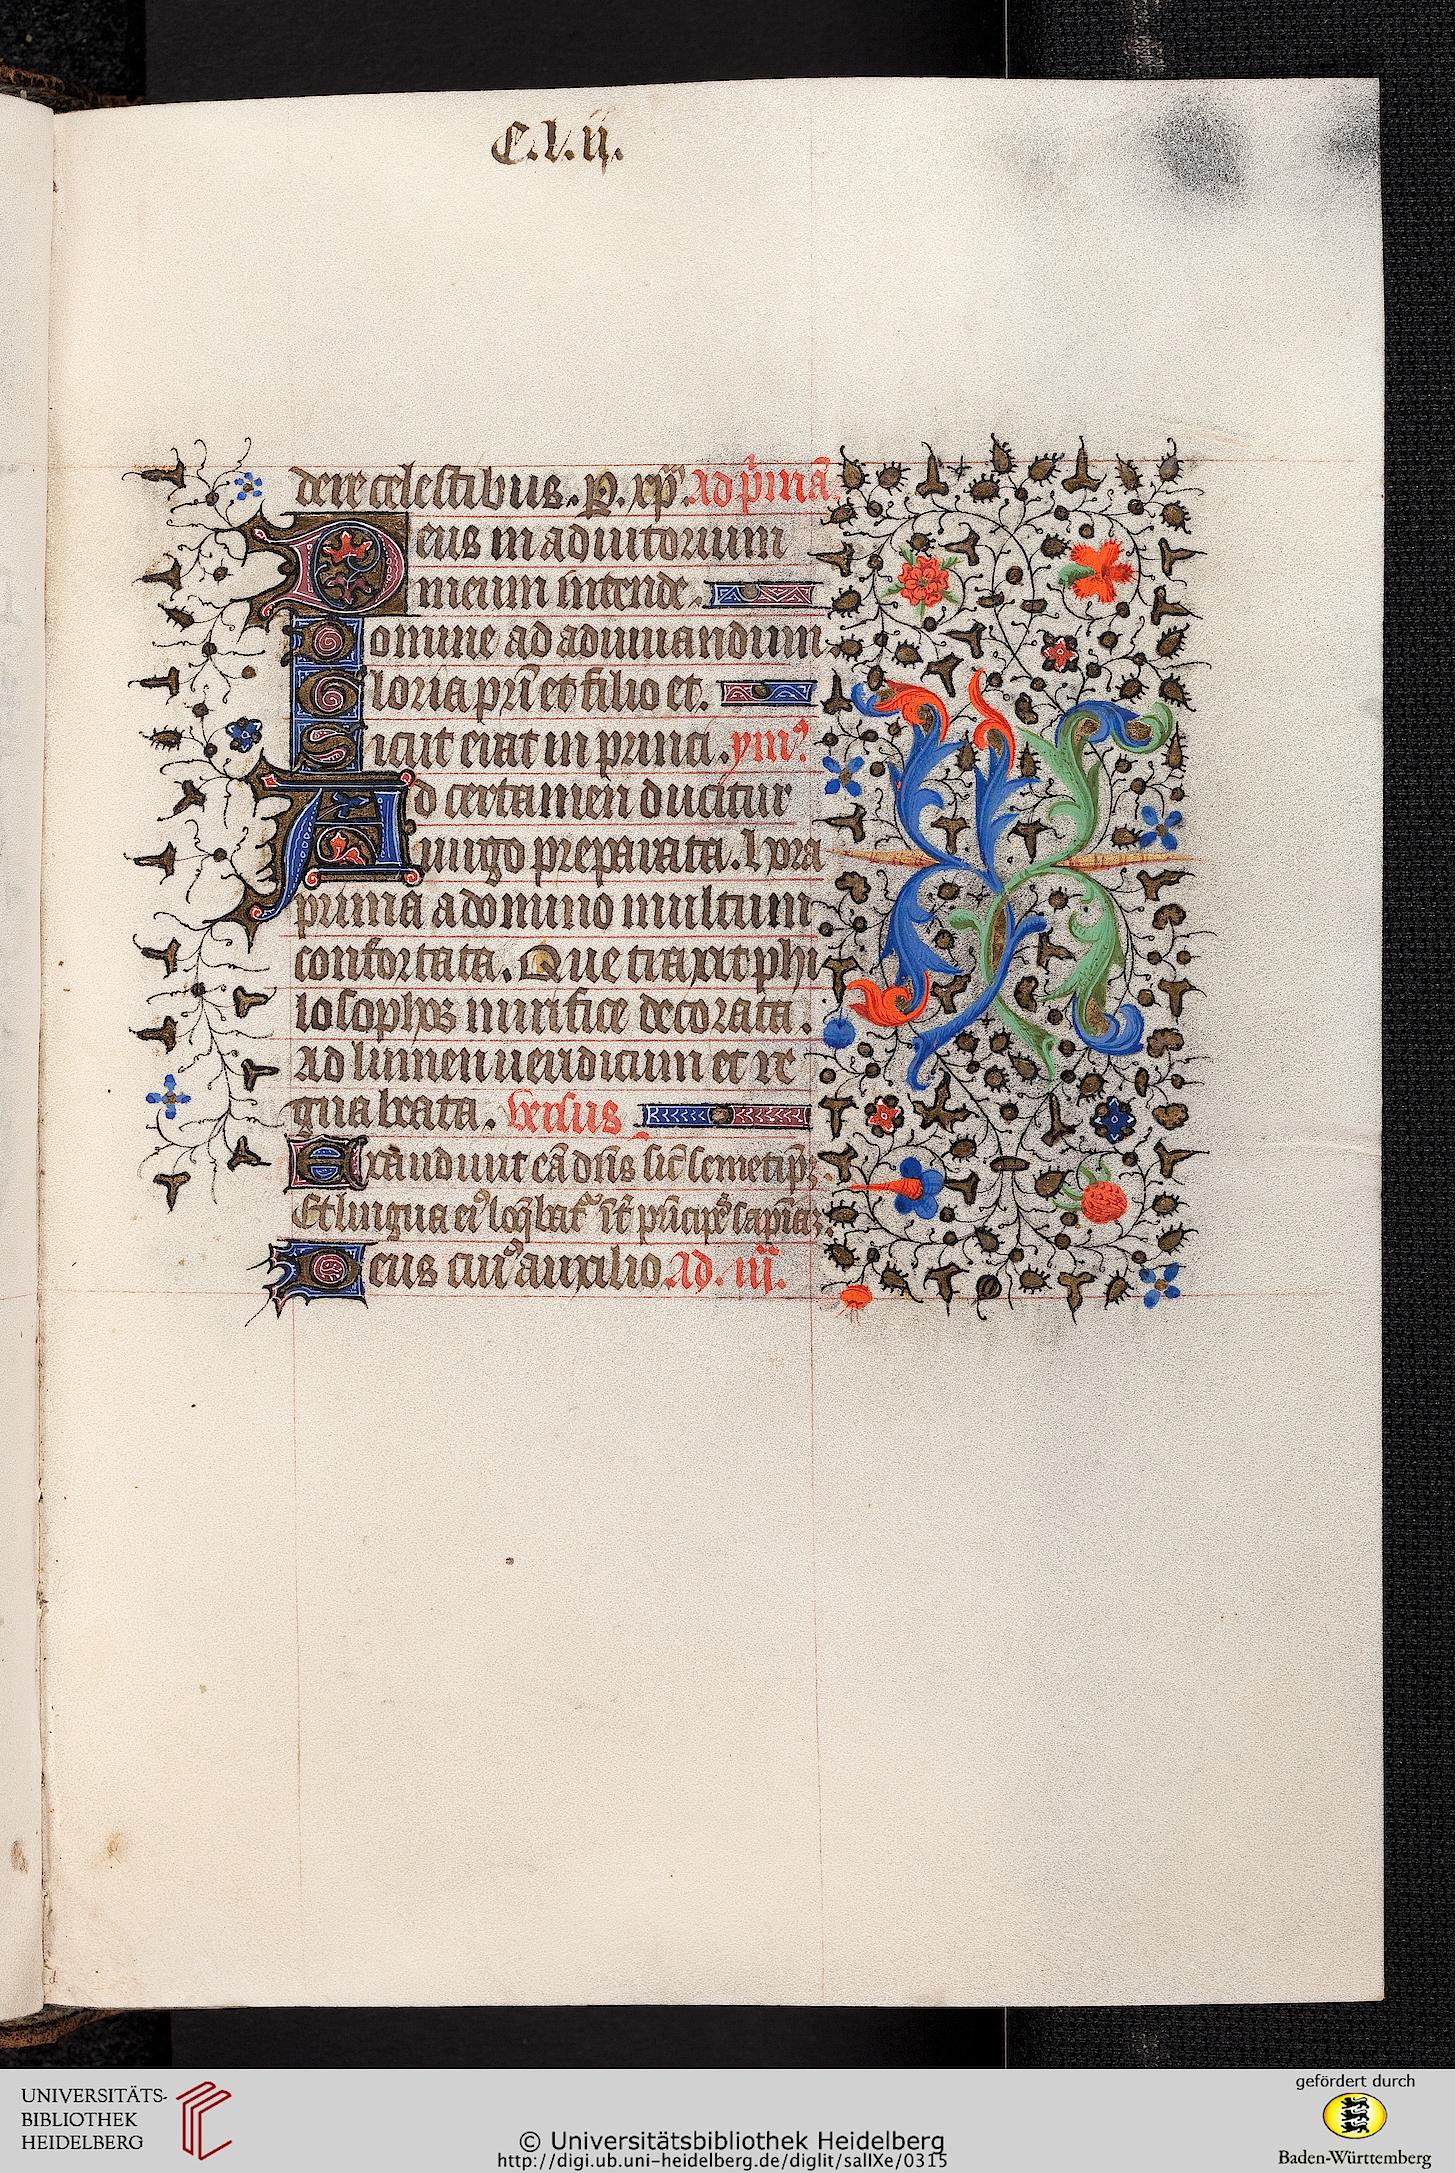 C.l.ij.
dere celestibus. P. xp̄ꝫ. Ad p̄mā.
Deus in adiutorium
meum intende.
Domine ad adiuuandum.
Gloria pr̄i et filio et.
Sicut erat in princi. ymꝯ.
Ad certamen ducitur
uirgo preparata. hora
prima a domino multum
confortata. Que traxit phi
losophos mirifice decorata.
Ad lumen ueridicum et re
gna beata. versus
Exaudiuit eā dn̄s
Et lingua eiꝯ
Deus cuiꝯ auxilio Ad. iij.
UNIVERSITÄTS-
BIBLIOTHEK
HEIDELBERG
© Universitätsbibliothek Heidelberg
http://digi.ub.uni-heidelberg.de/diglit/salIXe/0315
gefördert durch
Baden-Württemberg